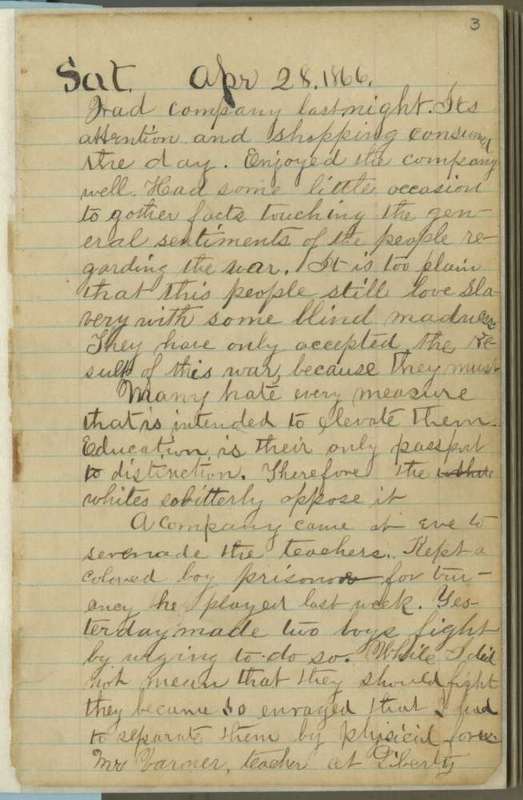 3
Sat. Apr 28, 1866.
Had company last night. Its
attention and shopping consumed
the day. Enjoyed the company
well. Had some little occasion
to gother facts touching the gen-
eral sentiments of the people re-
garding the war. It is too plain
that this people still love Sla-
very with some blind madness
They have only accepted the re-
sult of this war, because they must.
Many hate every measure
that is intended to elevate them.
Education, is their only passport
to distinction. Therefore the
whites so bitterly oppose it
A company came at eve to
serenade the teachers. Kept a
colored boy prisoner for tru-
ancy he played last week. Yes-
terday made two boys fight
by urging to do so. While I did
not mean that they should fight
they became so enraged that I had
to separate them by physical force.
Mr Varner, teacher at Liberty